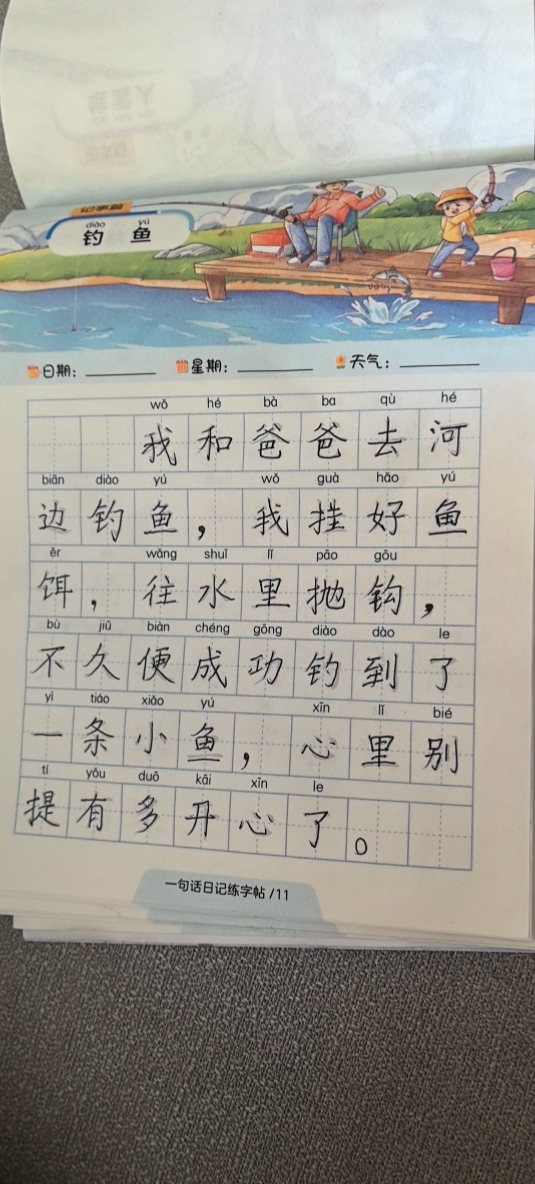 记事篇
diào yú
钓 鱼
日期：
星期：
天气：
wǒ hé bà ba qù hé
我和爸爸去河
biān diào yú wǒ guà hǎo yú
边钓鱼，我挂好鱼
ěr wǎng shuǐ lǐ pāo gōu
饵，往水里抛钩，
bù jiǔ biàn chéng gōng diào dào le
不久便成功钓到了
yì tiáo xiǎo yú xīn lǐ bié
一条小鱼，心里别
tí yǒu duō kāi xīn le
提有多开心了。
一句话日记练字帖 /11